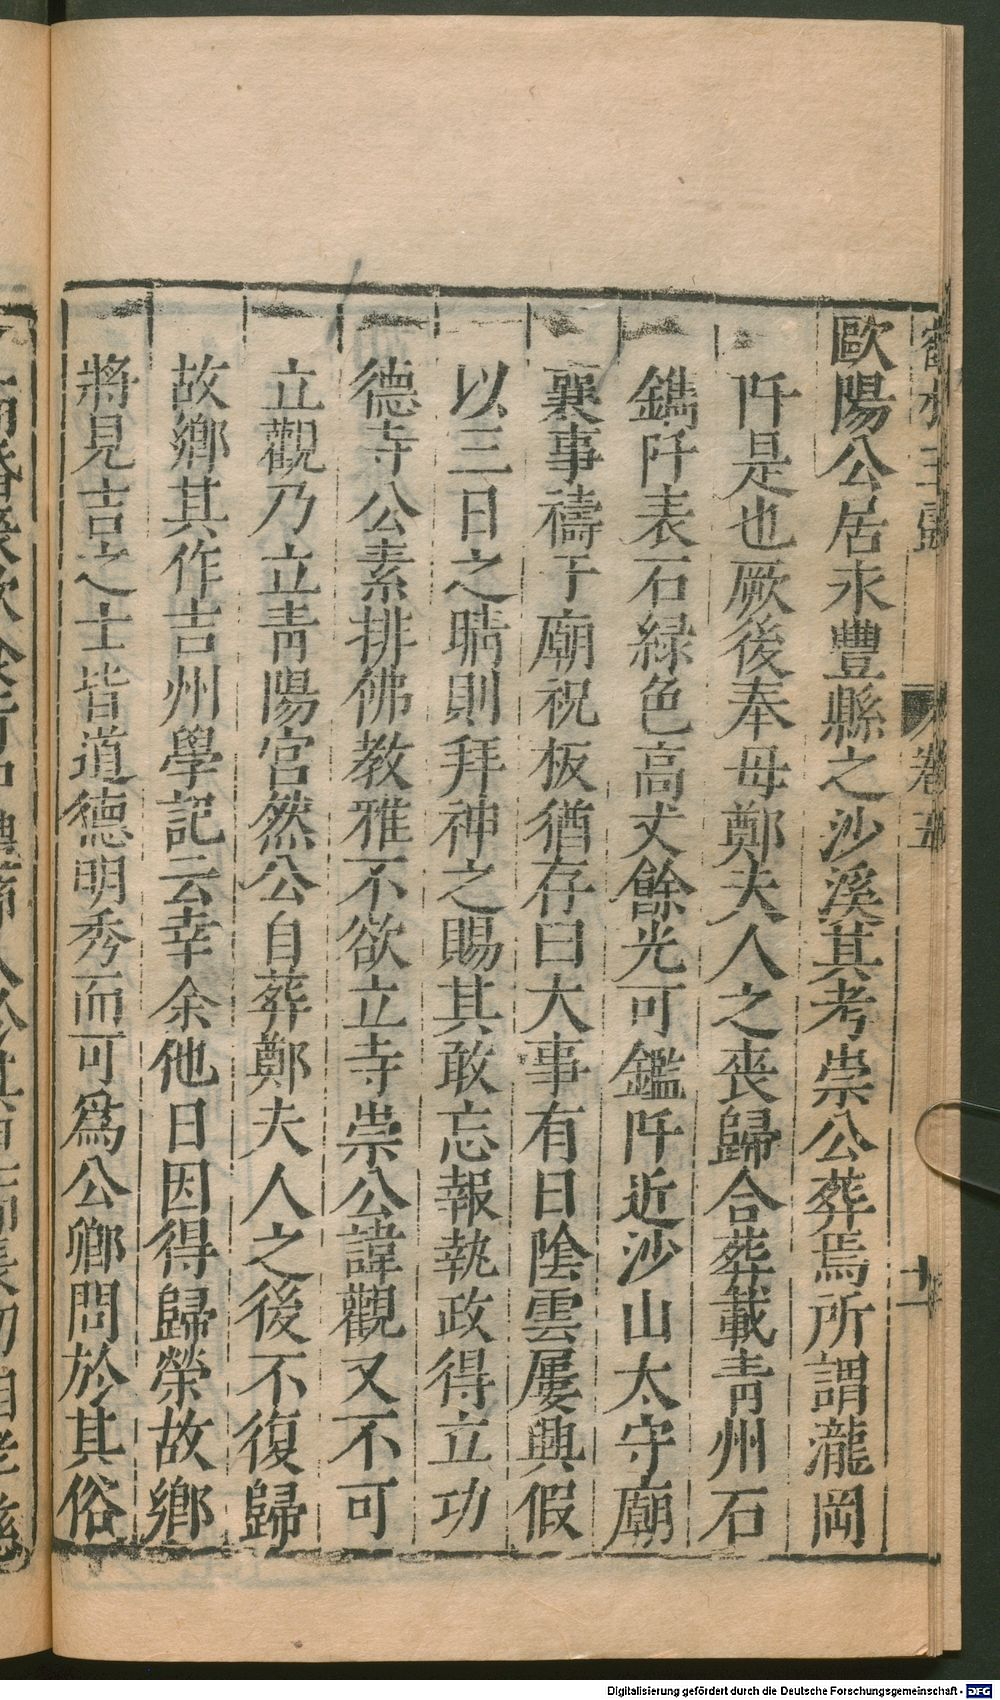 歐陽公居永豐縣之沙溪其考崇公葬焉所謂瀧岡
阡是也厥後奉母鄭夫人之喪歸合葬載青州石
鐫阡表石緑色高丈餘光可鑑阡近沙山太守廟
襄事禱于廟祝板猶存曰大事有日陰雲屢興假
以三日之晴則拜神之賜其敢忘報執政得立功
德寺公素排佛教雅不欲立寺崇公諱觀又不可
立觀乃立青陽宮然公自葬鄭夫人之後不復歸
故鄉其作吉州學記云幸余他日因得歸榮故鄉
將見吉之士皆道德明秀而可爲公卿問於其俗
卷五
十一
Digitalisierung gefördert durch die Deutsche Forschungsgemeinschaft - DFG